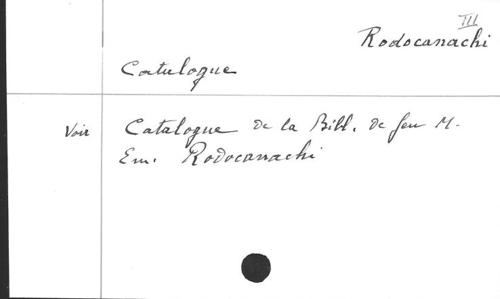 III
Rodocanachi
Catalogue
Voir Catalogue de la Bibl. de feu M.
Em. Rodocanachi